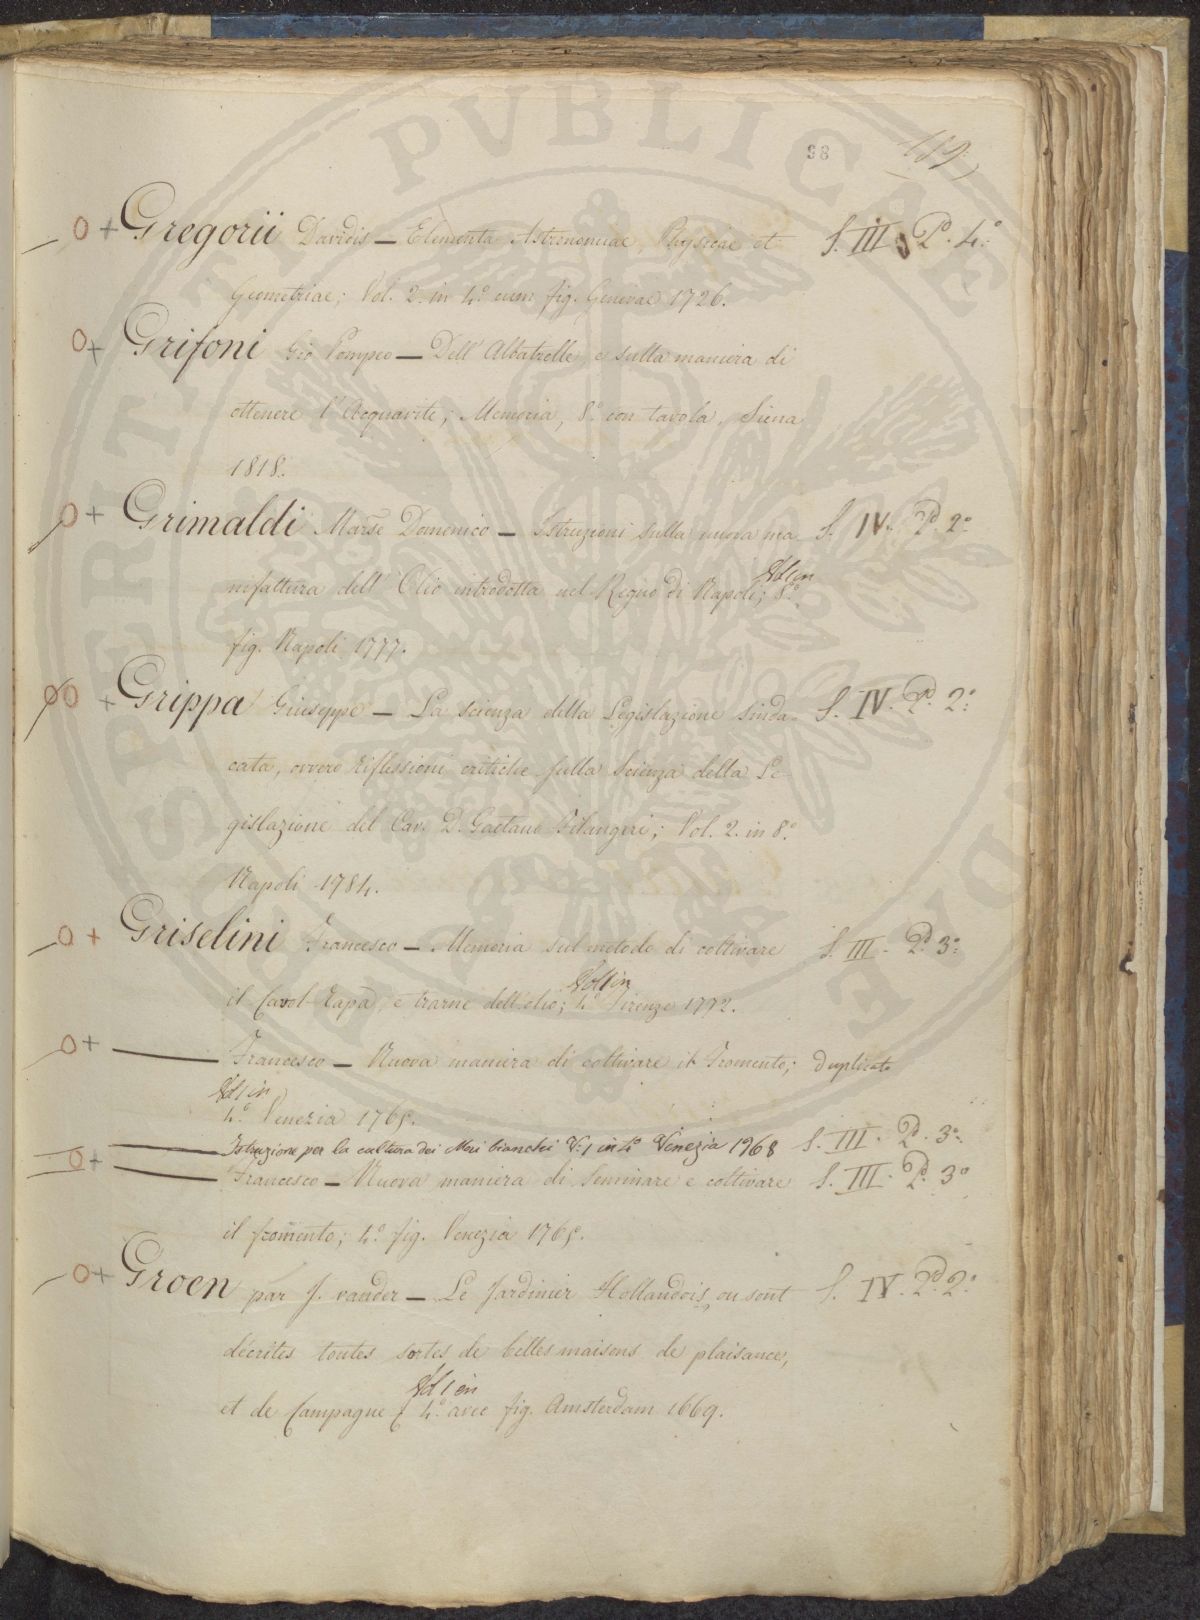 98 119.
0 + Gregorii Davidis — Elementa Astronomiae, Physicae et S. III. Pd. 4.º
Geometriae; Vol. 2. in 4.º cum fig. Genevae 1726.
0 + Grifoni Gio Pompeo — Dell' Albatrelle, e sulla maniera di
ottenere l'Acquavite; Memoria, 8.º con tavola. Siena
1818.
0 + Grimaldi Marse Domenico — Istruzioni sulla nuova ma S. IV. Pd. 2.º
nifattura dell' Olio introdotta nel Regno di Napoli; Vol 1 in 8.º
fig. Napoli 1777.
0 0 + Grippa Giuseppe — La scienza della Legislazione sinda- S. IV. Pd. 2.º
cata, ovvero riflessioni critiche sulla Scienza della Le-
gislazione del Cav. D. Gaetano Filangeri; Vol. 2. in 8.º
Napoli 1784.
0 + Griselini Francesco — Memoria sul metodo di coltivare S. III. Pd. 3.º
il Cavol-Rapa, e trarne dell'olio; Vol 1 in 4.º Firenze 1772.
0 + — Francesco — Nuova maniera di coltivare il Fromento; Duplicato
Vol 1 in 4.º Venezia 1765.
— Istruzione per la coltura dei Mori bianchi V. 1 in 4.º Venezia 1768 S. III. Pd. 3.º
0 + — Francesco — Nuova maniera di Seminare e coltivare S. III. Pd. 3.º
il fromento; 4.º fig. Venezia 1765.
0 + Groen par J. vander — Le Jardinier Hollandois, ou sont S. IV. Pd. 2.º
décrites toutes sortes de belles maisons de plaisance,
et de Campagne; Vol 1 in 4.º avec fig. Amsterdam 1669.
PVBLICAE
PROSPERITATIS